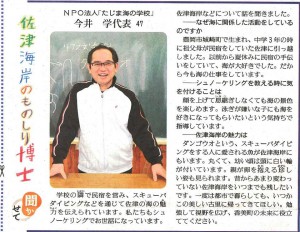 佐津海岸のものしり博士
聞かせて
NPO法人「たじま海の学校」
今井 学代表 47
学校の隣で民宿を営み、スキューバ
ダイビングなどを通じて佐津の海の魅
力を伝えられています。私たちもシュ
ノーケリングでお世話になっています。
佐津海岸などについて話を聞きました。
――なぜ海に関係した活動をしている
のですか
豊岡市城崎町で生まれ、中学3年の時
に祖父母が民宿をしていた佐津に引っ越
しました。以前から夏休みに民宿の手伝
いをしていて、海が大好きでした。だか
ら今も海の仕事をしています。
――シュノーケリングを教える時に気
を付けることは
顔を上げて息継ぎしなくても海の景色
を楽しめます。泳ぎが嫌いな子にも海を
好きになってもらいたいという気持ちで
指導しています。
――佐津海岸の魅力は
ダンゴウオという、スキューバダイビ
ングをする人に愛される魚が佐津海岸に
います。丸くて、幼い頃は頭に白い輪
が付いています。親が卵を抱える珍し
い姿も見られます。昔からあまり変わっ
ていない佐津海岸をいつまでも残したい
です。一度は都市で暮らしても、いつか
この美しい古里に帰ってきてほしい。勉
強して視野を広げ、香美町の未来に役立
ててください。